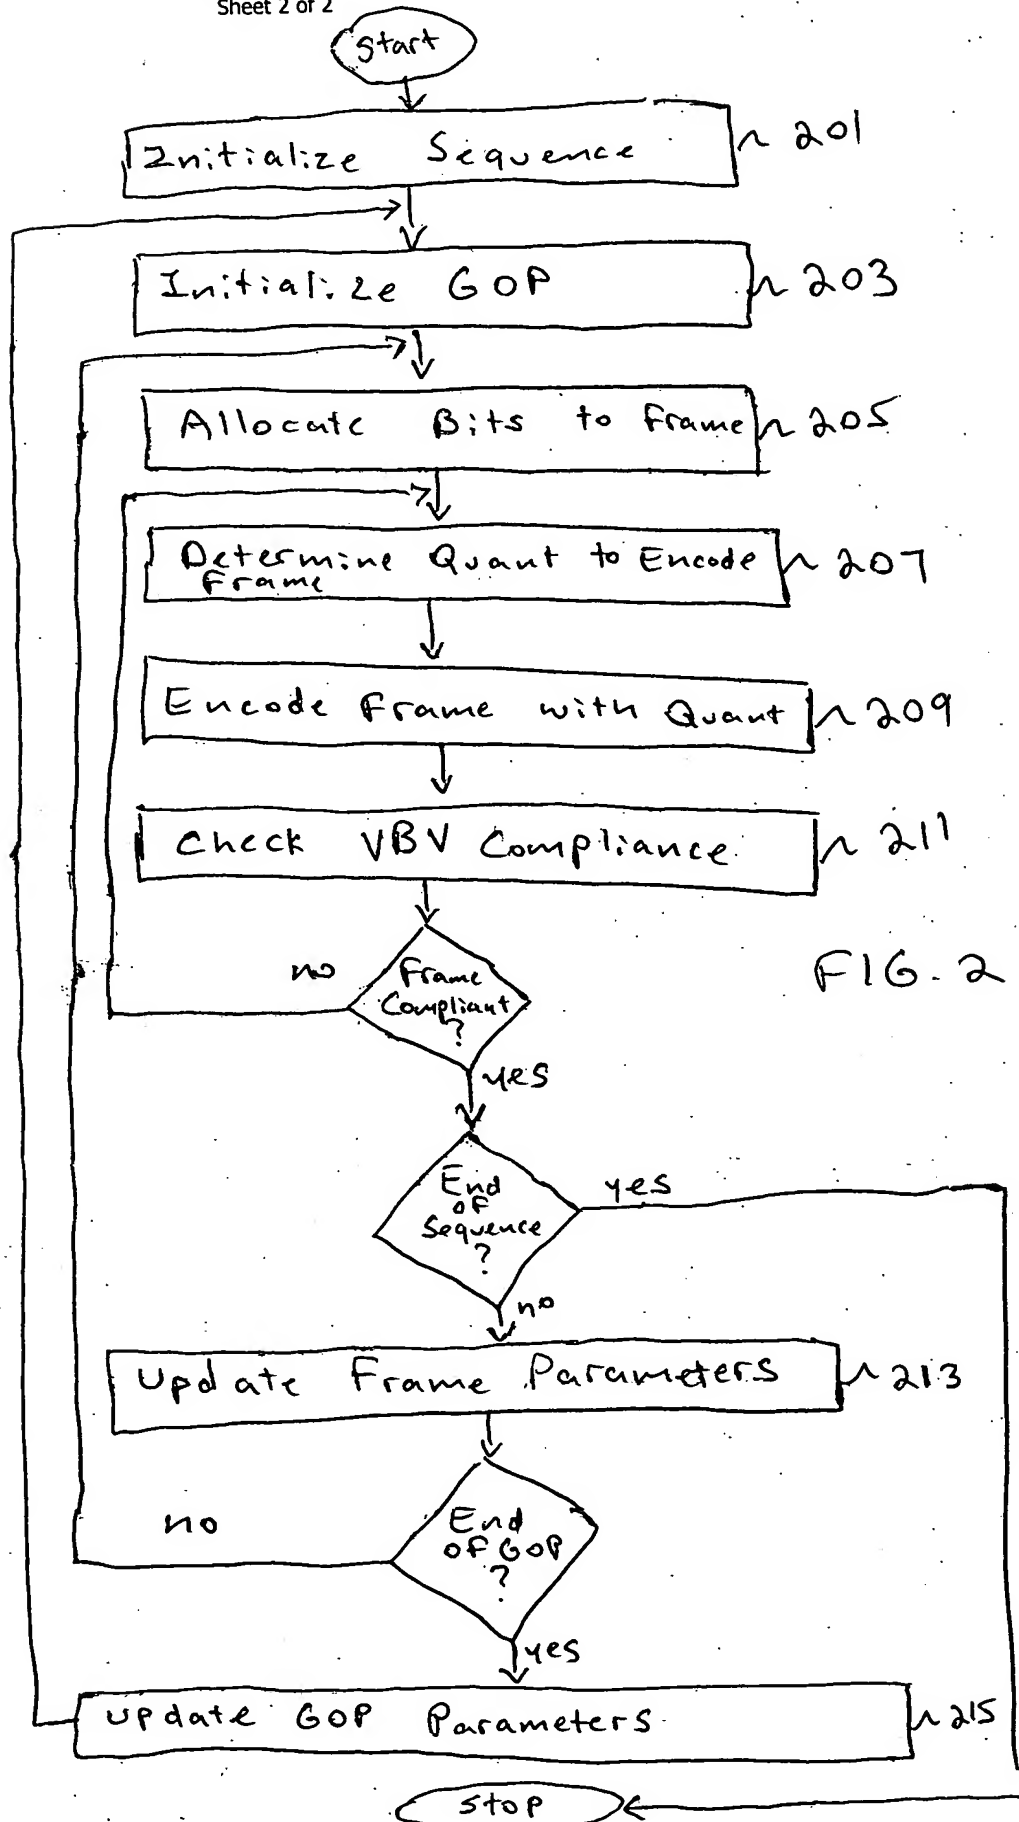 Sheet 2 of 2
Start
Initialize Sequence
201
Initialize GOP
203
Allocate Bits to Frame
205
Determine Quant to Encode
Frame
207
Encode Frame with Quant
209
Check VBV Compliance
211
no
Frame
Compliant
?
FIG. 2
yes
End
of
Sequence
?
yes
no
Update Frame Parameters
213
no
End
of GOP
?
yes
update GOP Parameters
215
stop